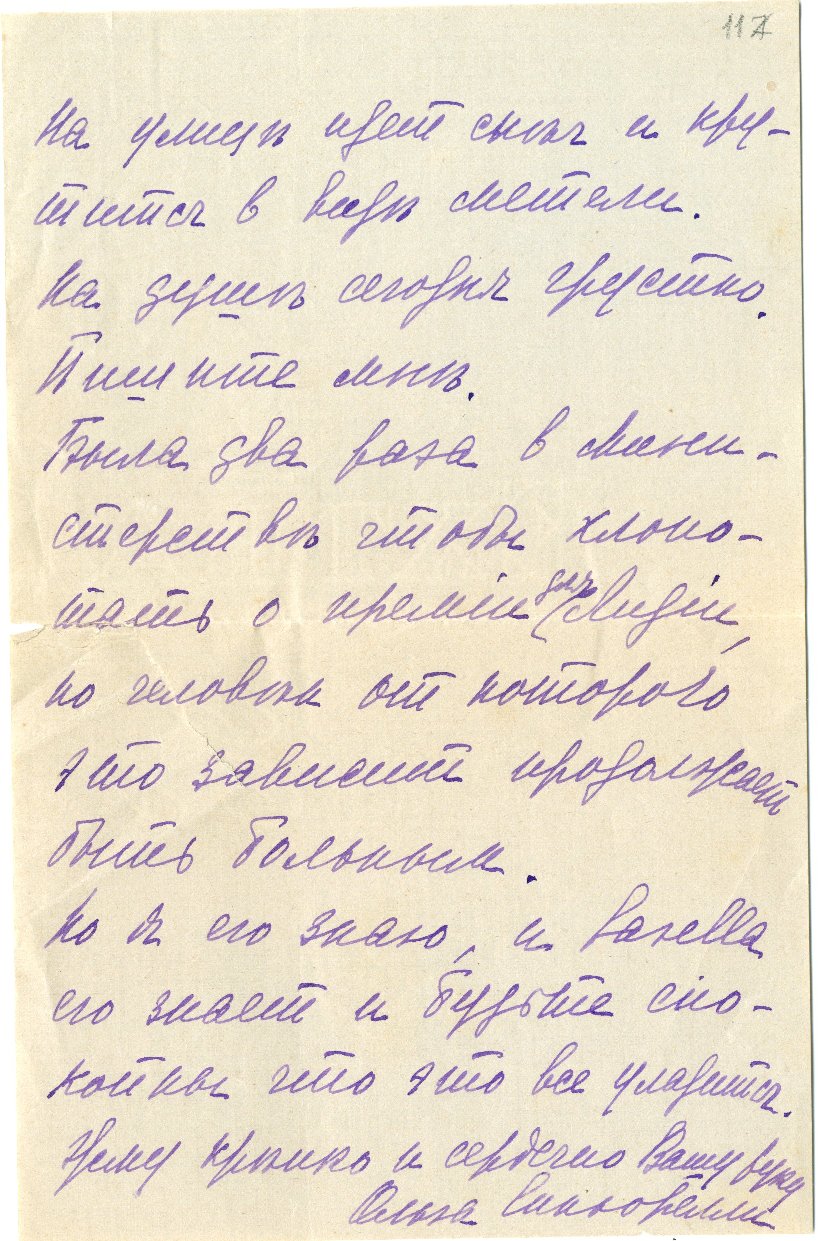 117
На улицѣ идет снѣг и кру-
тится в видѣ метели.
На душѣ сегодня грустно.
Пишите мнѣ.
Была два раза в Мини-
стерствѣ чтобы хлопо-
тать о преміи для Лидіи,
но человѣк от котораго
это зависит продолжает
быть больным.
Но я его знаю, и
его знает и будьте спо-
койны что это все уладится.
Жму крѣпко и сердечно Вашу руку
Ольга Синьорелли